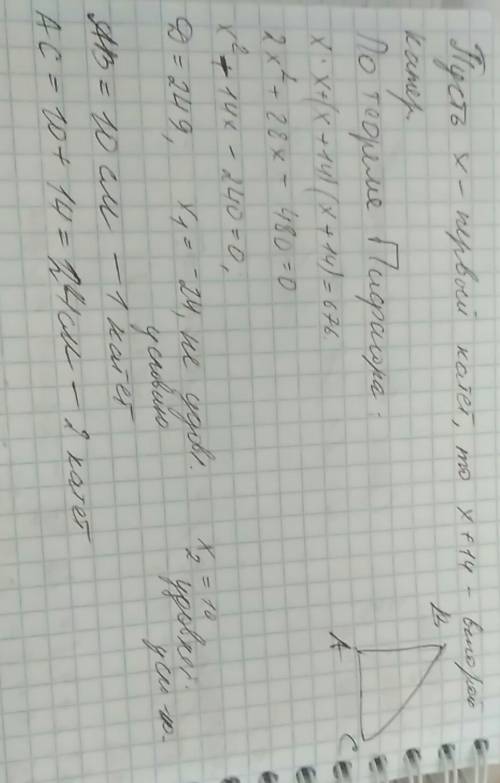 Пусть x - первый катет, то x+14 - второй
катер
По теореме Пифагора.
x·x+(x+14)(x+14)=676
2x²+28x-480=0
x²+14x-240=0,
D=249, x₁=-24, не удов. условию x₂=10 удовл. усл-ю.
AB=10 см - 1 катет
AC=10+14=24 см - 2 катет
B
A
C